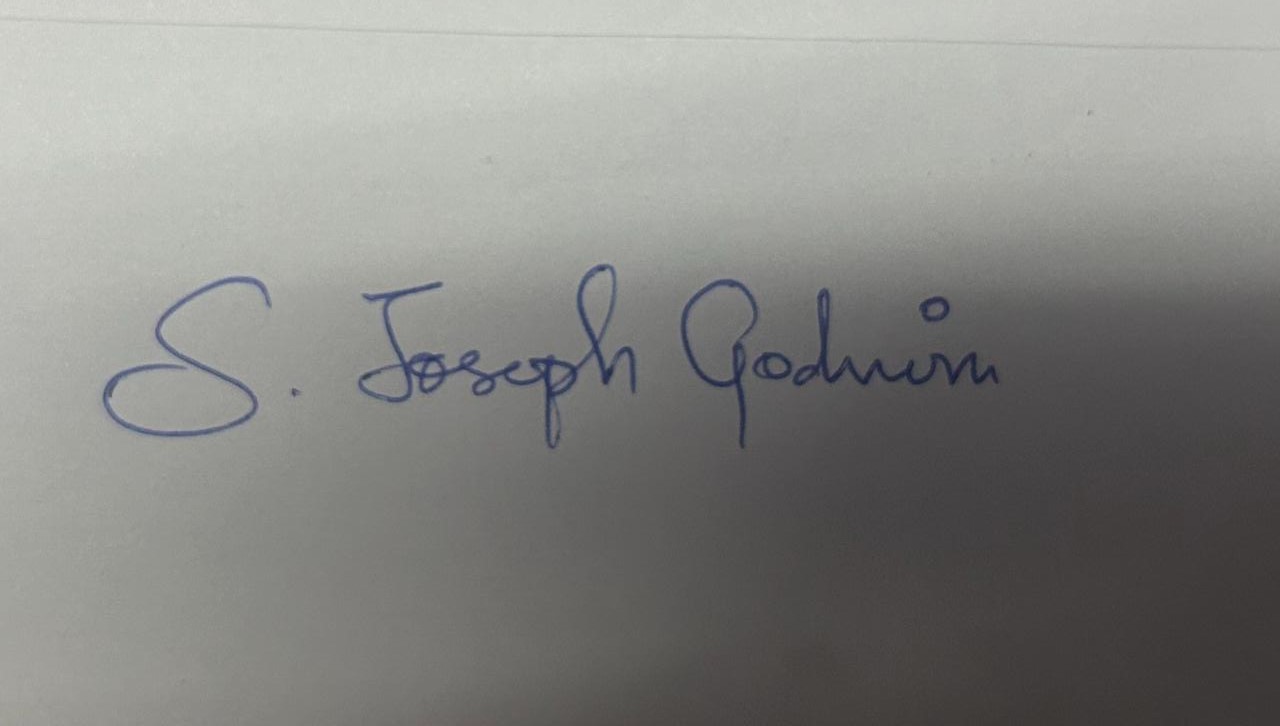 S. Joseph Godwin